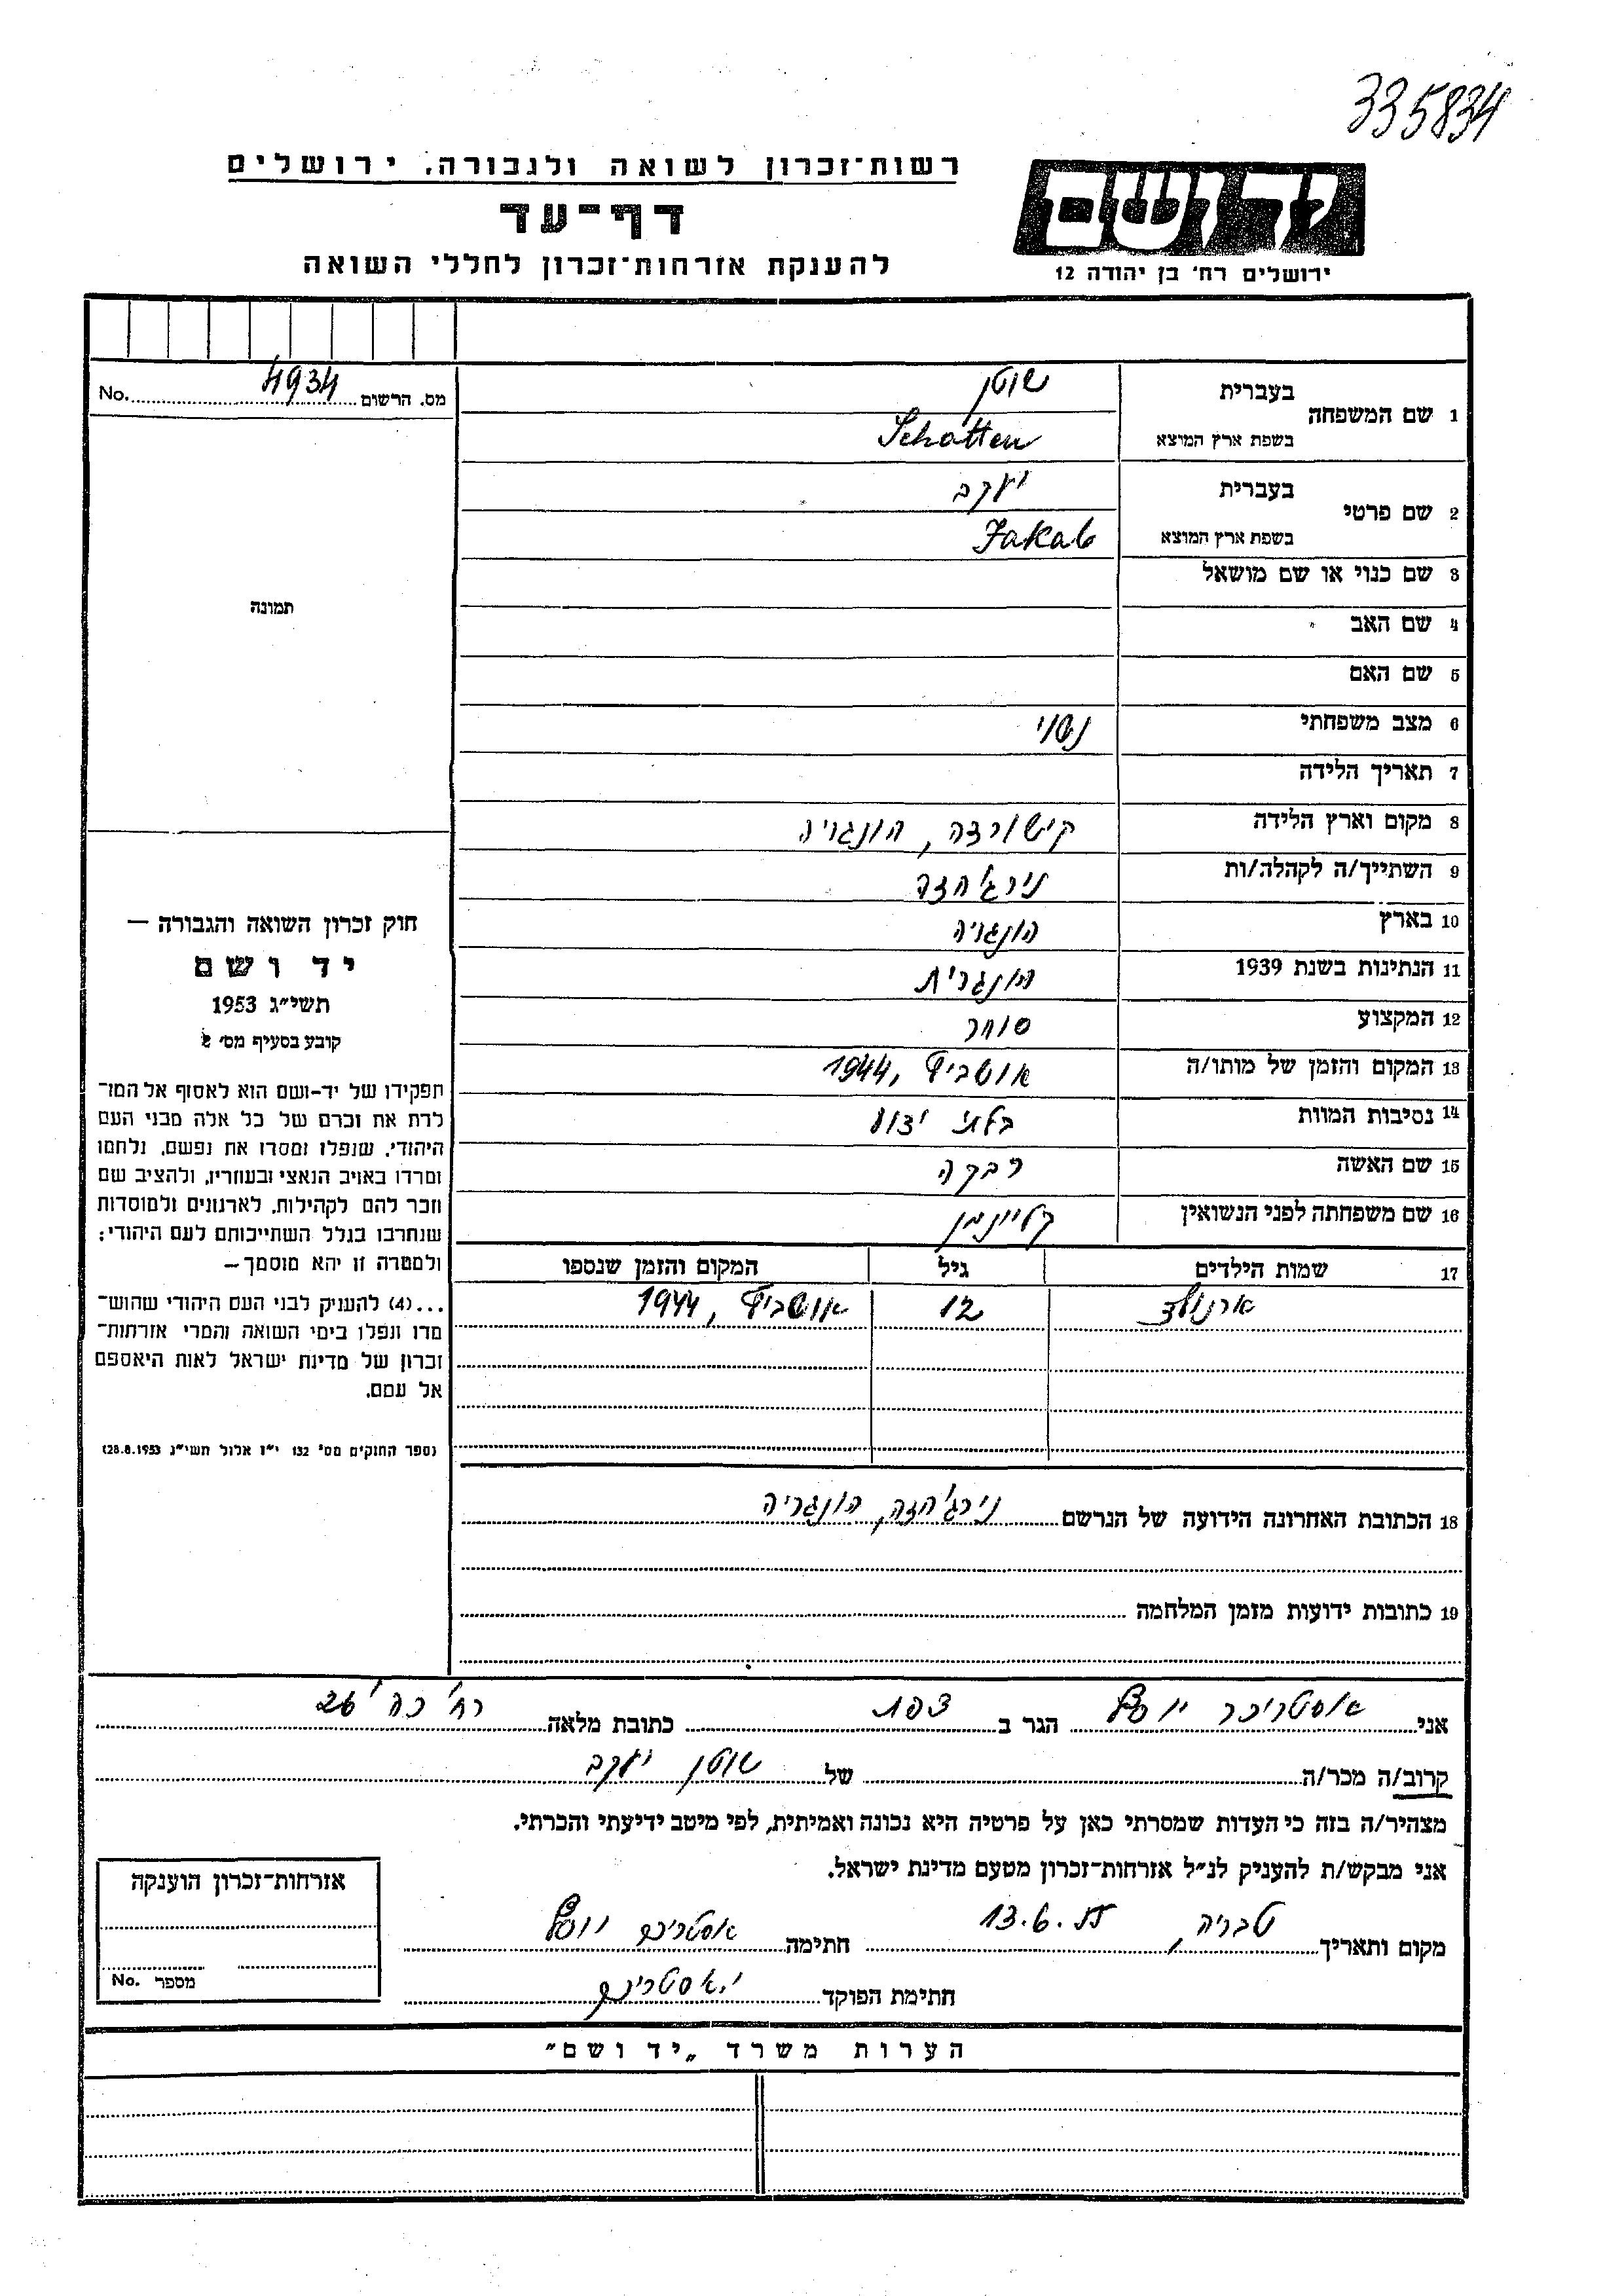 335834
יד ושם
ירושלים רח' בן יהודה 12
רשות־זכרון לשואה ולגבורה, ירושלים
דף־עד
להענקת אזרחות־זכרון לחללי השואה
מס. הרשום 4934 No.
1 שם המשפחה
בעברית שוטן
בשפת ארץ המוצא Schotten
2 שם פרטי
בעברית יעקב
בשפת ארץ המוצא Jakab
3 שם כנוי או שם מושאל
4 שם האב
5 שם האם
6 מצב משפחתי נשוי
7 תאריך הלידה
8 מקום וארץ הלידה קישורצה, הונגריה
9 השתייך/ה לקהלה/ות נירג'הזה
10 בארץ הונגריה
11 הנתינות בשנת 1939 הונגרית
12 המקצוע סוחר
13 המקום והזמן של מותו/ה אושביץ, 1944
14 נסיבות המוות בלתי ידוע
15 שם האשה רבקה
16 שם משפחתה לפני הנשואין קליינמן
17 שמות הילדים גיל המקום והזמן שנספו
ארנולד 12 אושביץ, 1944
18 הכתובת האחרונה הידועה של הנרשם נירג'הזה, הונגריה
19 כתובות ידועות מזמן המלחמה
תמונה
חוק זכרון השואה והגבורה —
יד ושם
תשי"ג 1953
קובע בסעיף מס' 2
תפקידו של יד-ושם הוא לאסוף אל המו־
לדת את זכרם של כל אלה מבני העם
היהודי, שנפלו ומסרו את נפשם, נלחמו
ומרדו באויב הנאצי ובעוזריו, ולהציב שם
וזכר להם לקהילות, לארגונים ולמוסדות
שנחרבו בגלל השתייכותם לעם היהודי;
ולמטרה זו יהא מוסמך—
...(4) להעניק לבני העם היהודי שהוש־
מדו ונפלו בימי השואה והמרי אזרחות־
זכרון של מדינת ישראל לאות היאספם
אל עמם.
(ספר החוקים מס' 132 י"ז אלול תשי"ג 28.8.1953)
אני אסטרייכר יוסף הגר ב צפת כתובת מלאה רח' כה' 26
קרוב/ה מכר/ה של שוטן יעקב
מצהיר/ה בזה כי העדות שמסרתי כאן על פרטיה היא נכונה ואמיתית, לפי מיטב ידיעתי והכרתי.
אני מבקש/ת להעניק לנ"ל אזרחות־זכרון מטעם מדינת ישראל.
מקום ותאריך טבריה, 13.6.55 חתימה אסטרייכר יוסף
חתימת הפוקד י. אסטרייכר
אזרחות־זכרון הוענקה
מספר No.
הערות משרד „יד ושם"